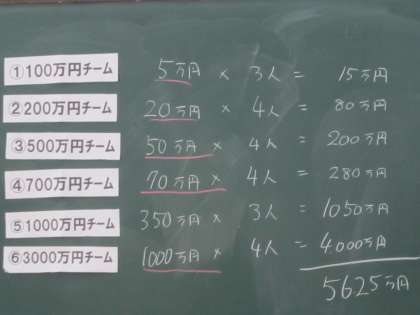 ①100万円チーム 5万円 × 3人 = 15万円
②200万円チーム 20万円 × 4人 = 80万円
③500万円チーム 50万円 × 4人 = 200万円
④700万円チーム 70万円 × 4人 = 280万円
⑤1000万円チーム 350万円 × 3人 = 1050万円
⑥3000万円チーム 1000万円 × 4人 = 4000万円
5625万円